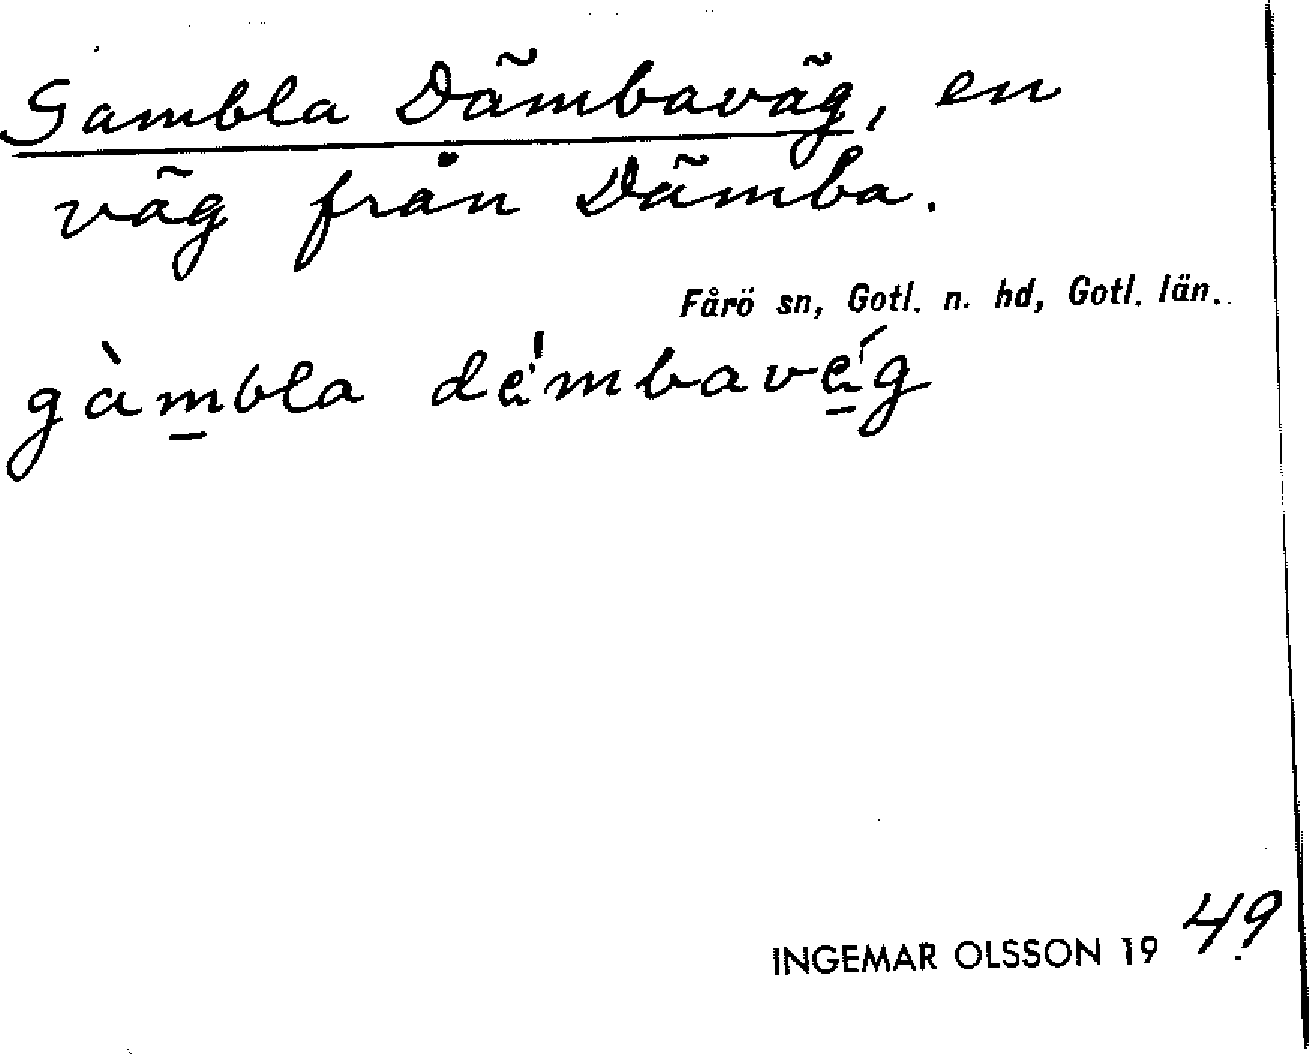 Gambla Dämbaväg, en
väg från Dämba.
Fårö sn, Gotl. n. hd, Gotl. län.
gàmbla dé̤mbavé̤g
INGEMAR OLSSON 1949.